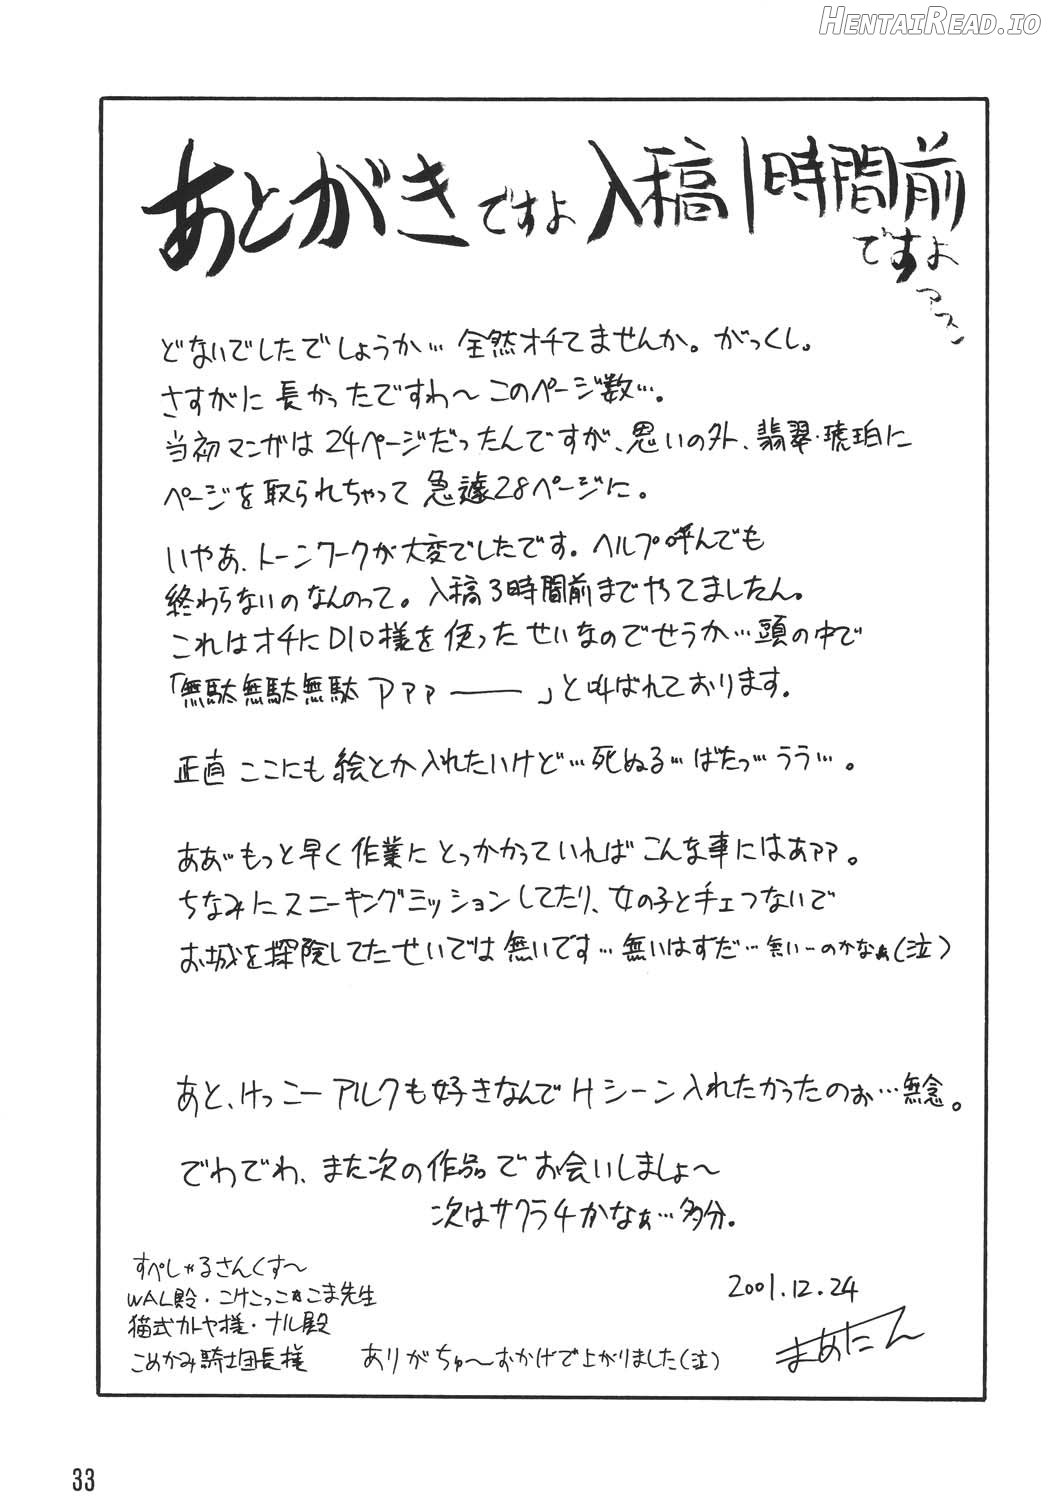 HENTAIREAD.IO
あとがきですよ 入稿1時間前
ですよ
アスン
どないでしたでしょうか… 全然オチてませんか。がっくし。
さすがに長かったですわ〜このページ数…。
当初マンガは24ページだったんですが、思いの外、翡翠・琥珀に
ページを取られちゃって急遽28ページに。
いやあ、トーンワークが大変でしたです。ヘルプ呼んでも
終わらないのなんのって。入稿3時間前までやってましたん。
これはオチにDIO様を使ったせいなのでせうか…頭の中で
「無駄無駄無駄アァァ――」と叫ばれております。
正直ここにも絵とか入れたいけど…死ぬる…ばたっ…うう…。
ああ゛もっと早く作業にとっかかっていればこんな事にはあァァ。
ちなみにスニーキングミッションしてたり、女の子とチェつないで
お城を探険してたせいでは無いです…無いはずだ…無いーのかなぁ(泣)
あと、けっこーアルクも好きなんでHシーン入れたかったのぉ…無念。
でわでわ、また次の作品でお会いしましょ〜
次はサクラ4かなぁ…多分。
すぺしゃるさんくす〜
WAL殿・こけこっこ
こま先生
猫式カトヤ様・ナル殿
こめかみ騎士団長様 ありがちゅ〜おかげで上がりました(泣)
2001.12.24
まあたん
33